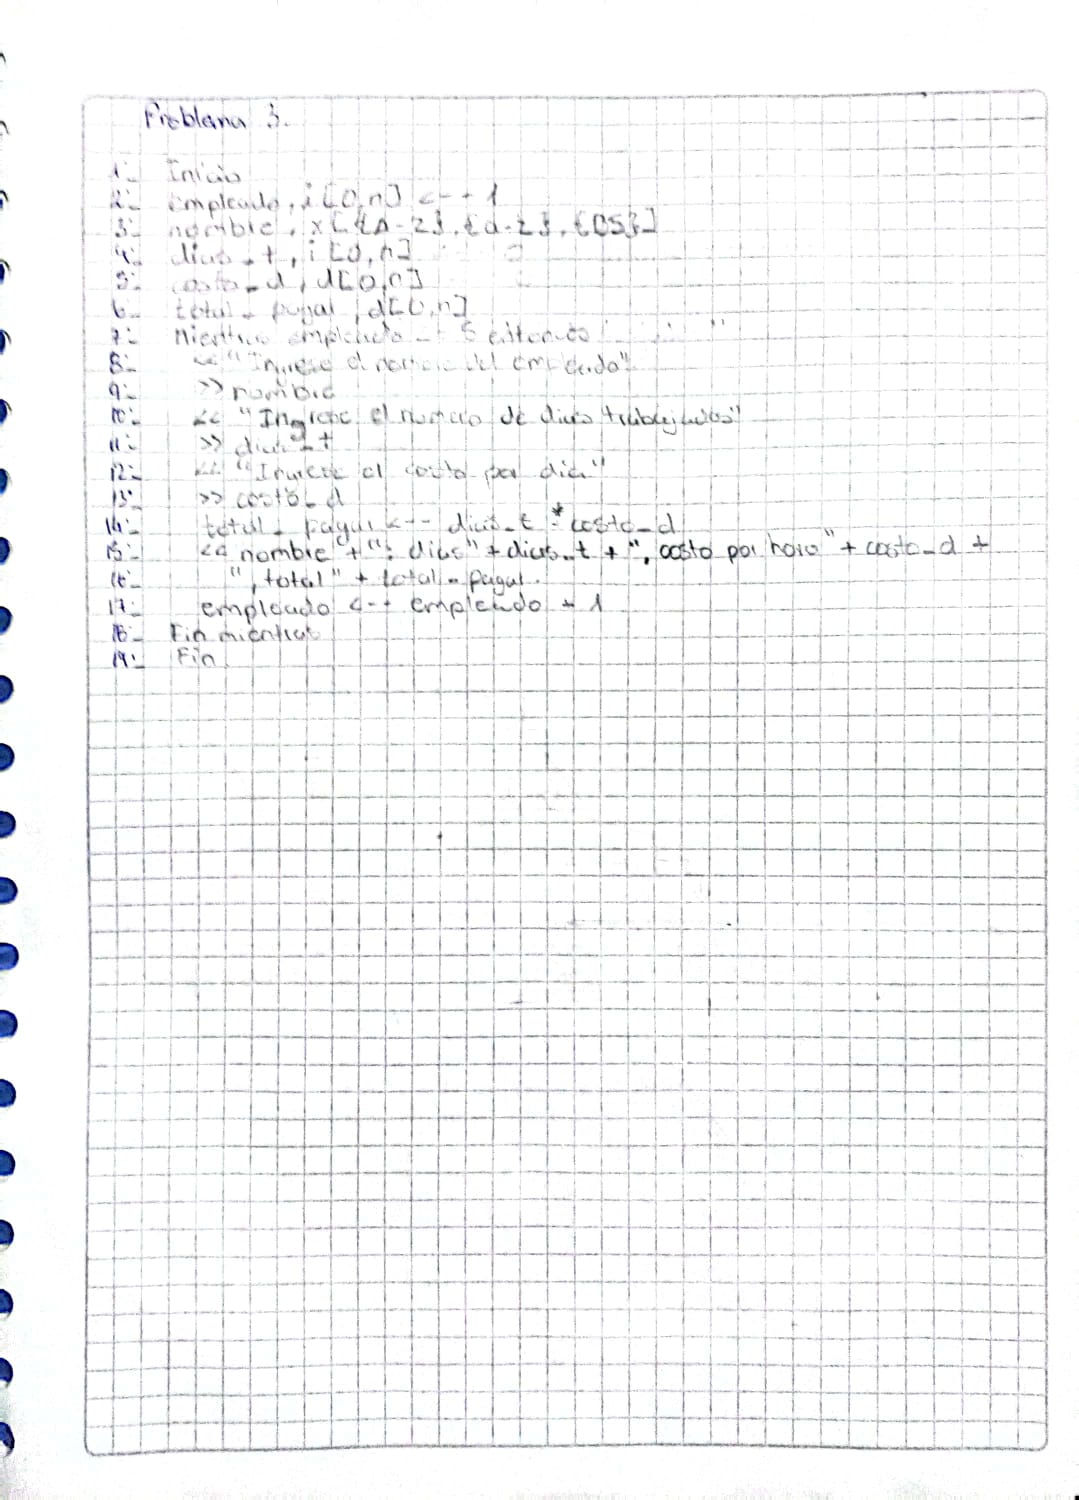 Problema 3.
1.- Inicio
2.- empleado, i [0,n] <-- 1
3.- nombre, x[{A-Z}, {a-z}, {ES}]
4.- dias_t, i [0,n]
5.- costo_d, d[0,n]
6.- total_pagar, d[0,n]
7.- mientras empleado 5 entonces
8.- << "Ingrese el nombre del empleado"
9.- >> nombre
10.- << "Ingrese el numero de dias trabajados"
11.- >> dias_t
12.- << "Ingrese el costo por dia"
13.- >> costo_d
14.- total_pagar <-- dias_t * costo_d
15.- << nombre + ": dias" + dias_t + ", costo por hora" + costo_d +
16.- ", total" + total_pagar.
17.- empleado <-- empleado + 1
18.- Fin mientras
19.- Fin